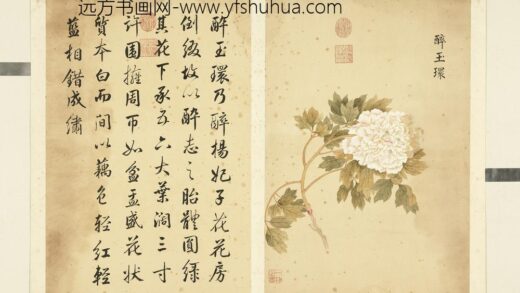 远方书画网-www.yfshuhua.com
醉玉環
醉玉環乃醉楊妃子花花房
倒綴故以醉志之胎體圓綠
其花下承五六大葉闊三寸
許圍擁周帀如盆盂盛花狀
質本白而間以藕色輕紅輕
藍相錯成繡